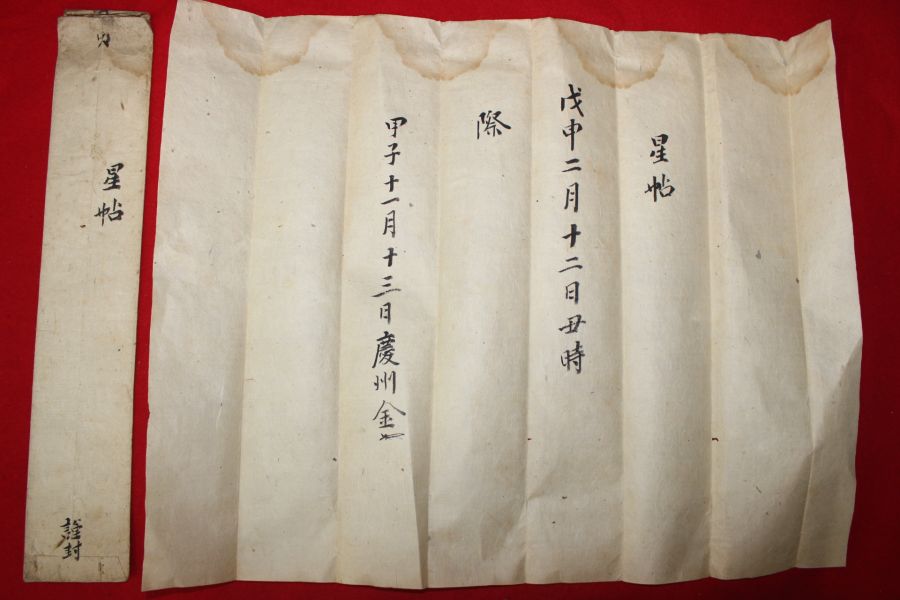 星帖
戊申二月十二日丑時
際
甲子十一月十三日慶州金
星帖
謹封